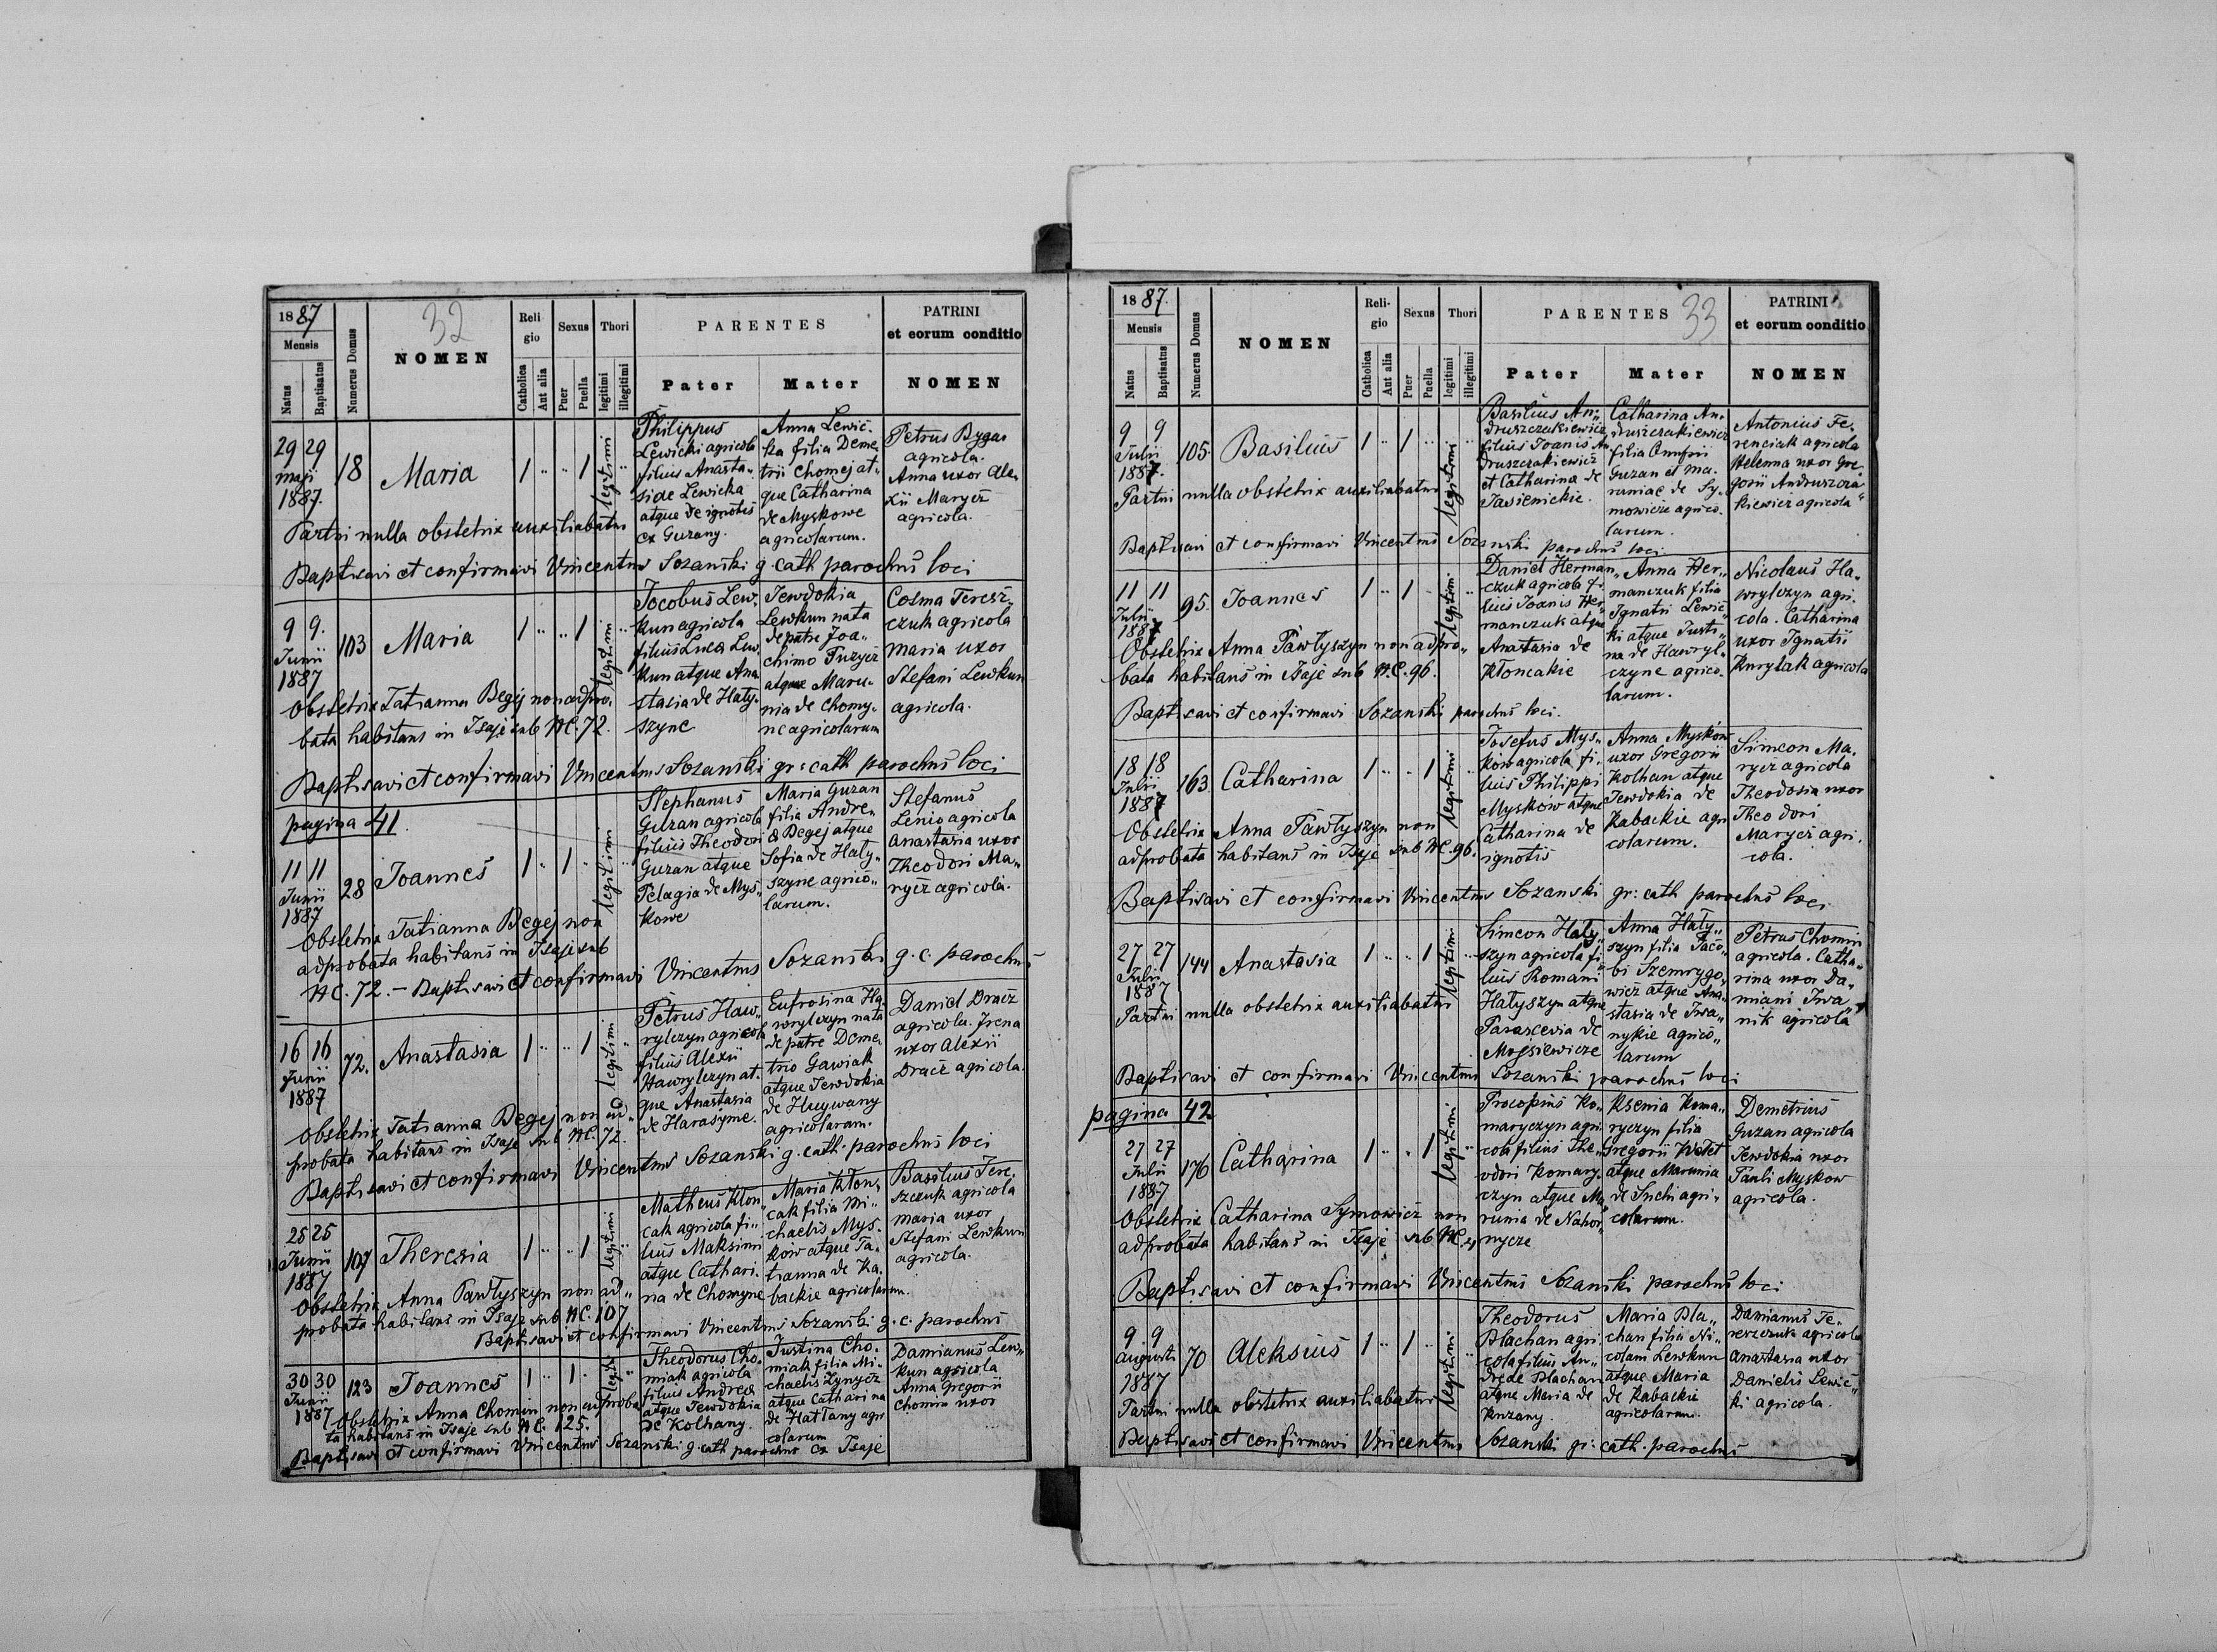 1887.
Mensis
Natus
Baptisatus
Numerus Domus
32
NOMEN
Religio
Catholica
Aut alia
Sexus
Puer
Puella
Thori
legitimi
illegitimi
PARENTES
Pater
Mater
PATRINI
et eorum conditio
NOMEN
29 29
maji
1887.
18
Maria
1 " " 1
legitimi
Philippus
Lewicki agricola
filius Anasta-
siae Lewicka
atque de ignotis
ex Guzany.
Anna Lewic-
ka filia Deme-
trii Chomej at-
que Catharina
de Myskowe
agricolarum.
Petrus Bygar
agricola.
Anna uxor Ale-
xii Marycz
agricola.
Partui nulla obstetrix auxiliabatur
Baptisavi et confirmavi Vincentius Sozanski g. cath parochus loci
9 9.
Junii
1887
103
Maria
1 " " 1
legitimi
Jacobus Lew-
kun agricola
filius Luca Lew-
kun atque Ana
stasia de Haty-
szyne
Jewdokia
Lewkun nata
de patre Joa-
chimo Tuzycz
atque Maru-
nia de Chomy-
ne agricolarum
Cosma Teresz-
czuk agricola
Maria uxor
Stefani Lewkun
agricola.
Obstetrix Tatianna Begej non adpro-
bata habitans in Isaje sub NC. 72.
Baptisavi et confirmavi Vincentius Sozanski gr: cath parochus loci
pagina 41.
11 11
Junii
1887
28
Joannes
1 " 1 "
legitimi
Stephanus
Guzan agricola
filius Theodori
Guzan atque
Pelagia de Mys-
kowe
Maria Guzan
filia Andre-
ae Begej atque
Sofia de Haty-
szyne agrico-
larum.
Stefanus
Lenio agricola
Anastasia uxor
Theodori Ma-
rycz agricola.
Obstetrix Tatianna Begej non
adprobata habitans in Isaje sub
NC. 72. - Baptisavi et confirmavi Vincentius Sozanski g. c. parochus
16 16
Junii
1887
72.
Anastasia
1 " " 1
legitimi
Petrus Haw-
rylczyn agricola
filius Alexii
Hawrylczyn at-
que Anastasia
de Harasyme.
Eufrosina Ha-
wrylczyn nata
de patre Deme-
trio Gawiak
atque Jewdokia
de Huywany
agricolarum.
Daniel Dracz
agricola. Irena
uxor Alexii
Dracz agricola.
Obstetrix Tatianna Begej non ad-
probata habitans in Isaje sub NC. 72.
Baptisavi et confirmavi Vincentius Sozanski g. cath. parochus loci
25 25
Junii
1887
107
Theresia
1 " " 1
legitimi
Matheus Kłon-
cak agricola fi-
lius Maksimi
atque Cathari-
na de Chomyne
Maria Kłon-
cak filia Mi-
chaelis Mys-
ków atque Ta-
tianna de Ka-
backie agricolarum.
Basilius Tere-
szczuk agricola
Maria uxor
Stefani Lewkun
agricola.
Obstetrix Anna Pawłyszyn non ad-
probata habitans in Isaje sub NC. 107
Baptisavi et confirmavi Vincentius Sozanski g. c. parochus
30 30
Junii
1887
123
Joannes
1 " 1 "
legit:
Theodorus Cho-
miak agricola
filius Andreae
atque Jewdokia
de Kolhany.
Justina Cho-
miak filia Mi-
chaelis Zynycz
atque Catharina
de Hattany agri
colarum
Damianus Lew-
kun agricola
Anna Gregorii
Chomin uxor
Obstetrix Anna Chomin non adproba-
ta habitans in Isaje sub NC. 125.
Baptisavi et confirmavi Vincentius Sozanski g cath parochus ex Isaje
1887.
Mensis
Natus
Baptisatus
Numerus Domus
NOMEN
Religio
Catholica
Aut alia
Sexus
Puer
Puella
Thori
legitimi
illegitimi
PARENTES
33
Pater
Mater
PATRINI
et eorum conditio
NOMEN
9 9
Julii
1887.
105.
Basilius
1 " 1 "
legitimi
Basilius An-
druszczakiewicz
filius Joanis An
druszczakiewicz
et Catharina de
Jasienickie.
Catharina An-
druszczakiewicz
filia Onufrii
Guzan et Ma-
runiae de Sy-
mowicze agrico-
larum.
Antonius Fe-
renciak agricola
Helenna uxor Gre-
gorii Andruszcza
kiewicz agricola
Partui nulla obstetrix auxiliabatur
Baptisavi et confirmavi Vincentius Sozanski parochus loci
11 11
Julii
1887
95.
Joannes
1 " 1 "
legitimi
Daniel Herman-
czuk agricola fi-
lius Joanis Her-
manczuk atque
Anastasia de
Kłoncakie
Anna Her-
manczuk filia
Ignatii Lewic-
ki atque Justi-
na de Hawryl-
czyne agrico-
larum.
Nicolaus Ha-
wrylczyn agri-
cola. Catharina
uxor Ignatii
Kurylak agricola
Obstetrix Anna Pawłyszyn non adpro-
bata habitans in Isaje sub NC. 96.
Baptisavi et confirmavi Sozanski parochus loci.
18 18
Julii
1887
163.
Catharina
1 " " 1
legitimi
Josefus Mys-
ków agricola fi-
lius Philippi
Myskow atque
Catharina de
ignotis
Anna Myskow
uxor Gregorii
Kolhan atque
Jewdokia de
Kabackie agri
colarum.
Simeon Ma-
rycz agricola
Theodosia uxor
Theodori
Marycz agri-
cola.
Obstetrix Anna Pawłyszyn non
adprobata habitans in Isaje sub NC. 96.
Baptisavi et confirmavi Vincentius Sozanski gr: cath parochus loci
27 27
Julii
1887
144
Anastasia
1 " " 1
legitimi
Simeon Haty-
szyn agricola fi-
lius Romani
Hatyszyn atque
Parascevia de
Mojsiewicze
Anna Haty-
szyn filia Jaco-
bi Szemrygo-
wicz atque Ana-
stasia de Iwa-
nykie agrico-
larum
Petrus Chomin
agricola. Catha-
rina uxor Da-
miani Iwa-
nik agricola
Partui nulla obstetrix auxiliabatur
Baptisavi et confirmavi Vincentius Sozanski parochus loci
pagina 42
27 27
Julii
1887
176
Catharina
1 " " 1
legitimi
Procopius Ko-
maryczyn agri-
cola filius The-
odori Komary-
czyn atque Ma-
runia de Nahor-
nycze
Ksenia Koma-
ryczyn filia
Gregorii
atque Marunia
de Suchi agri-
colarum.
Demetrius
Guzan agricola
Jewdokia uxor
Pauli Myskow
agricola.
Obstetrix Catharina Symowicz non
adprobata habitans in Isaje sub NC.
Baptisavi et confirmavi Vincentius Sozanski parochus loci
9 9
augusti
1887
70
Aleksius
1 " 1 "
legitimi
Theodorus
Blachan agri-
cola filius An-
dreae Blachan
atque Maria de
Kuzany.
Maria Bla-
chan filia Ni-
colaui Lewkun
atque Maria
de Kabackie
agricolarum.
Damianus Te-
reszczuk agricola
Anastasia uxor
Danielis Lewic-
ki agricola.
Partui nulla obstetrix auxiliabatur
Baptisavi et confirmavi Vincentius Sozanski gr: cath. parochus